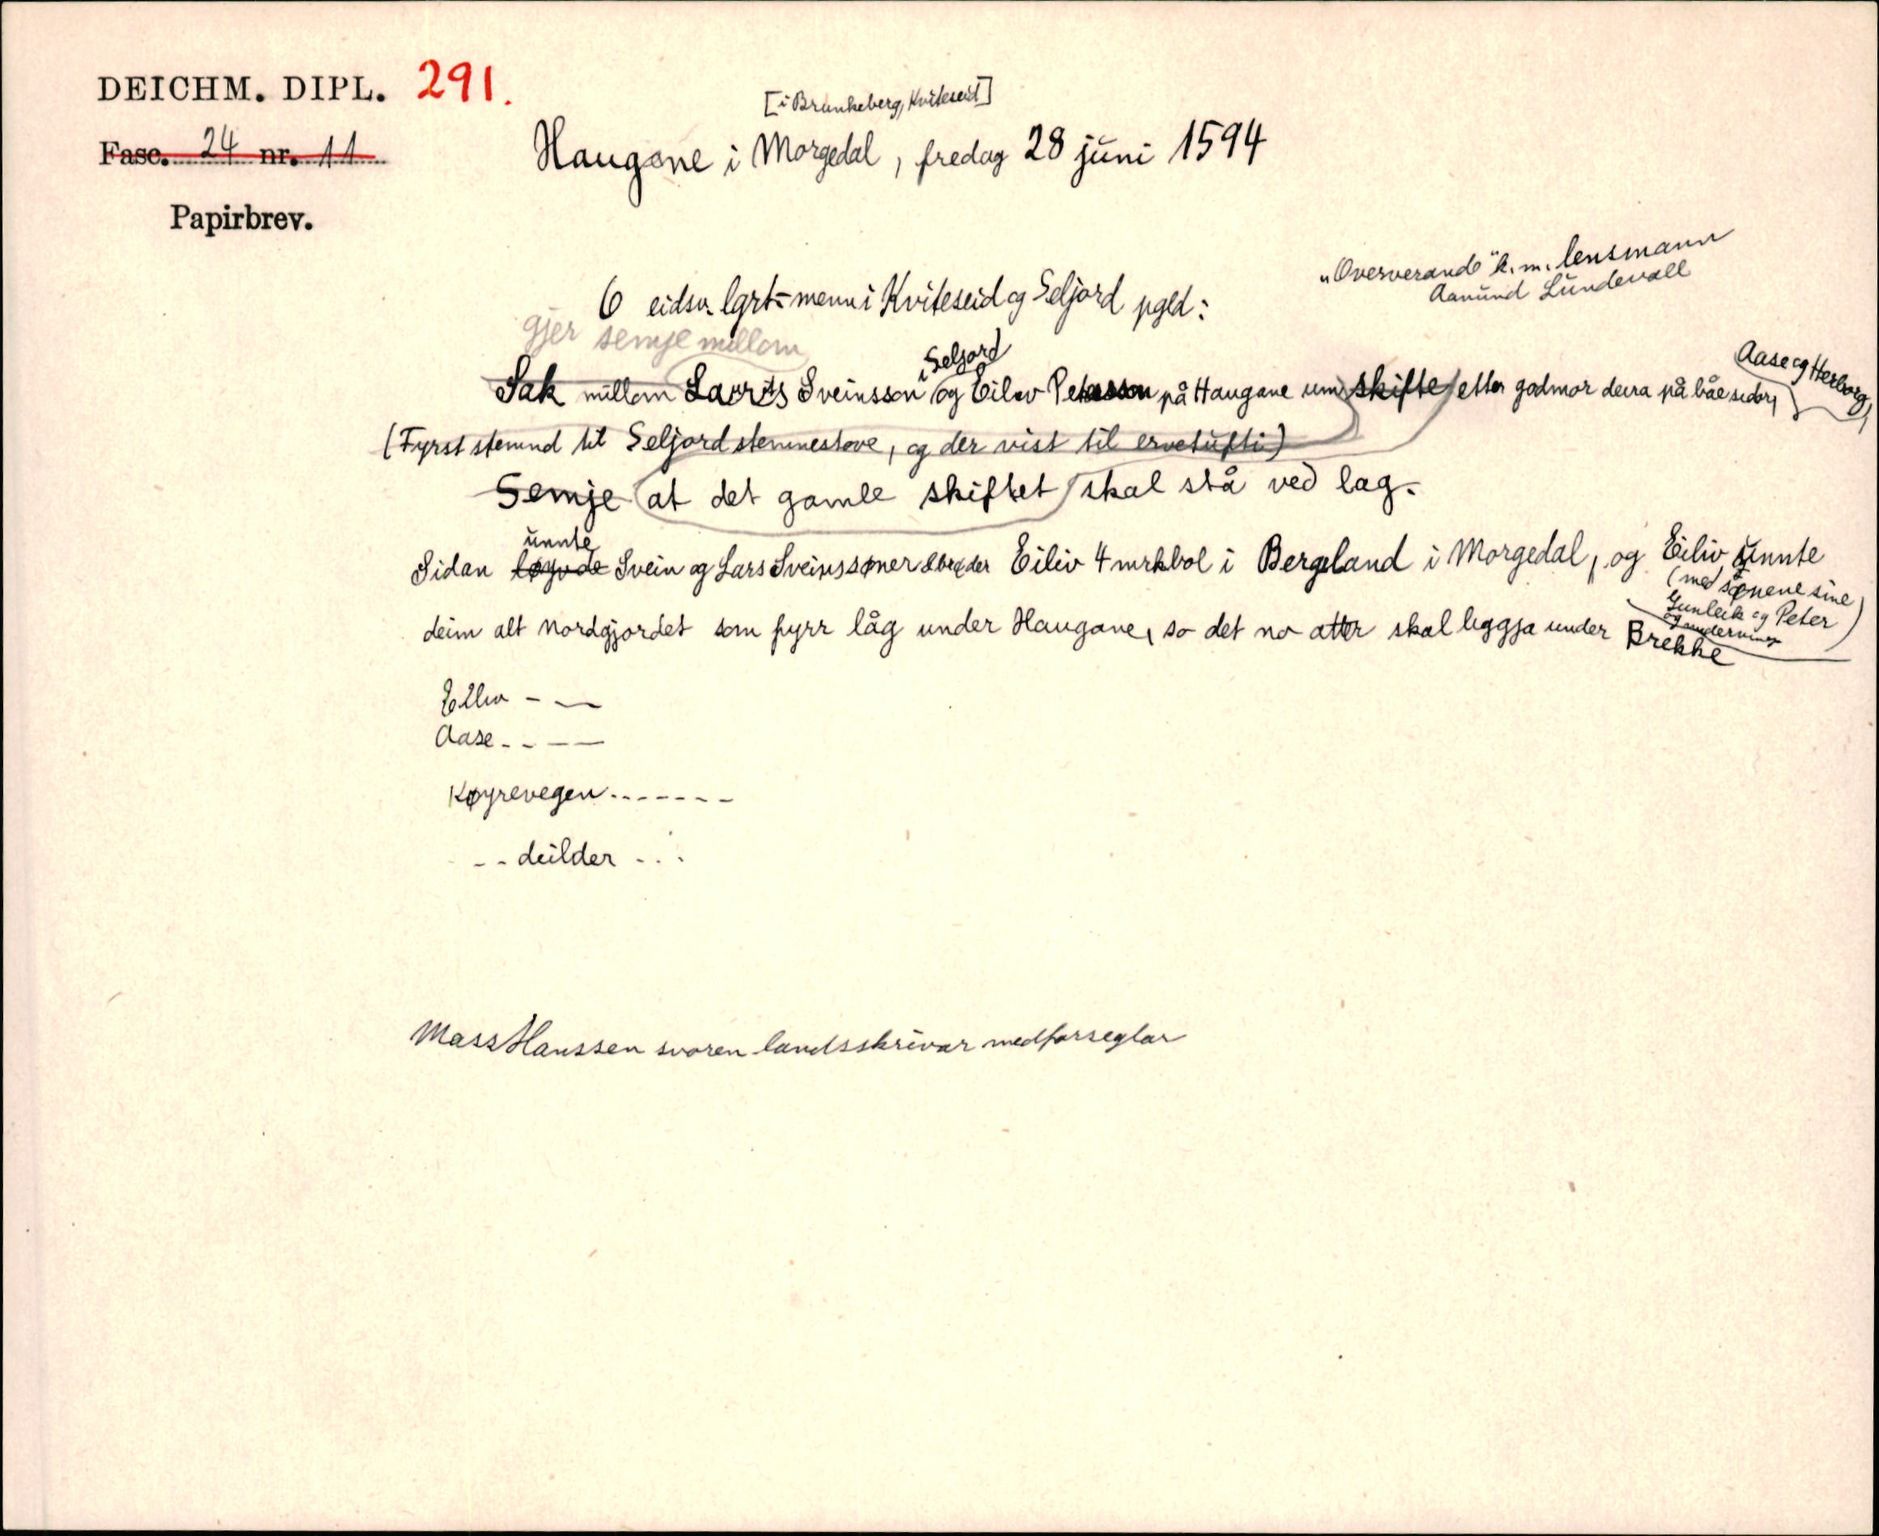 DEICHM. DIPL. 291.
Fasc. 24 nr. 11
Papirbrev.
[i Brunkeberg, Kviteseid]
Haugane i Morgedal, fredag 28 juni 1594
"Oververande" k. m. lensmann
Aanund Lundevall
6 eidsv. lgrt-menn i Kviteseid og Seljord pgld:
gjer semje millom
i Seljord
Aase og Herborg,
Sak millom Lavrits Sveinsson og Eiliv Petersson på Haugane um skifte etter godmor deira på båe sidor,
(Fyrst stemnd til Seljord stemnestove, og der vist til ervetufti)
Semje at det gamle skiftet skal stå ved lag.
unnte
Sidan løyvde Svein og Lars Sveinssøner Eiliv 4 mrkbol i Bergeland i Morgedal, og Eiliv unnte
(med sønene sine
Gunleik og Peter)
deim alt Nordgjordet som fyrr låg under Haugane, so det no atter skal liggja under Brekke
Eiliv - —
Aase - - — —
Køyrevegen - - - - - - -
- - deilder - . .
Mass Hanssen svoren landsskrivar medforseglar